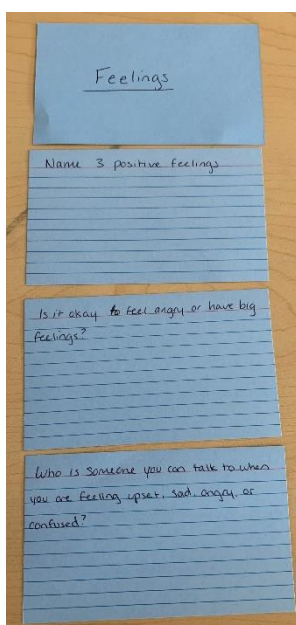 Feelings
Name 3 positive feelings
Is it okay to feel angry or have big
feelings?
Who is someone you can talk to when
you are feeling upset, sad, angry, or
confused?